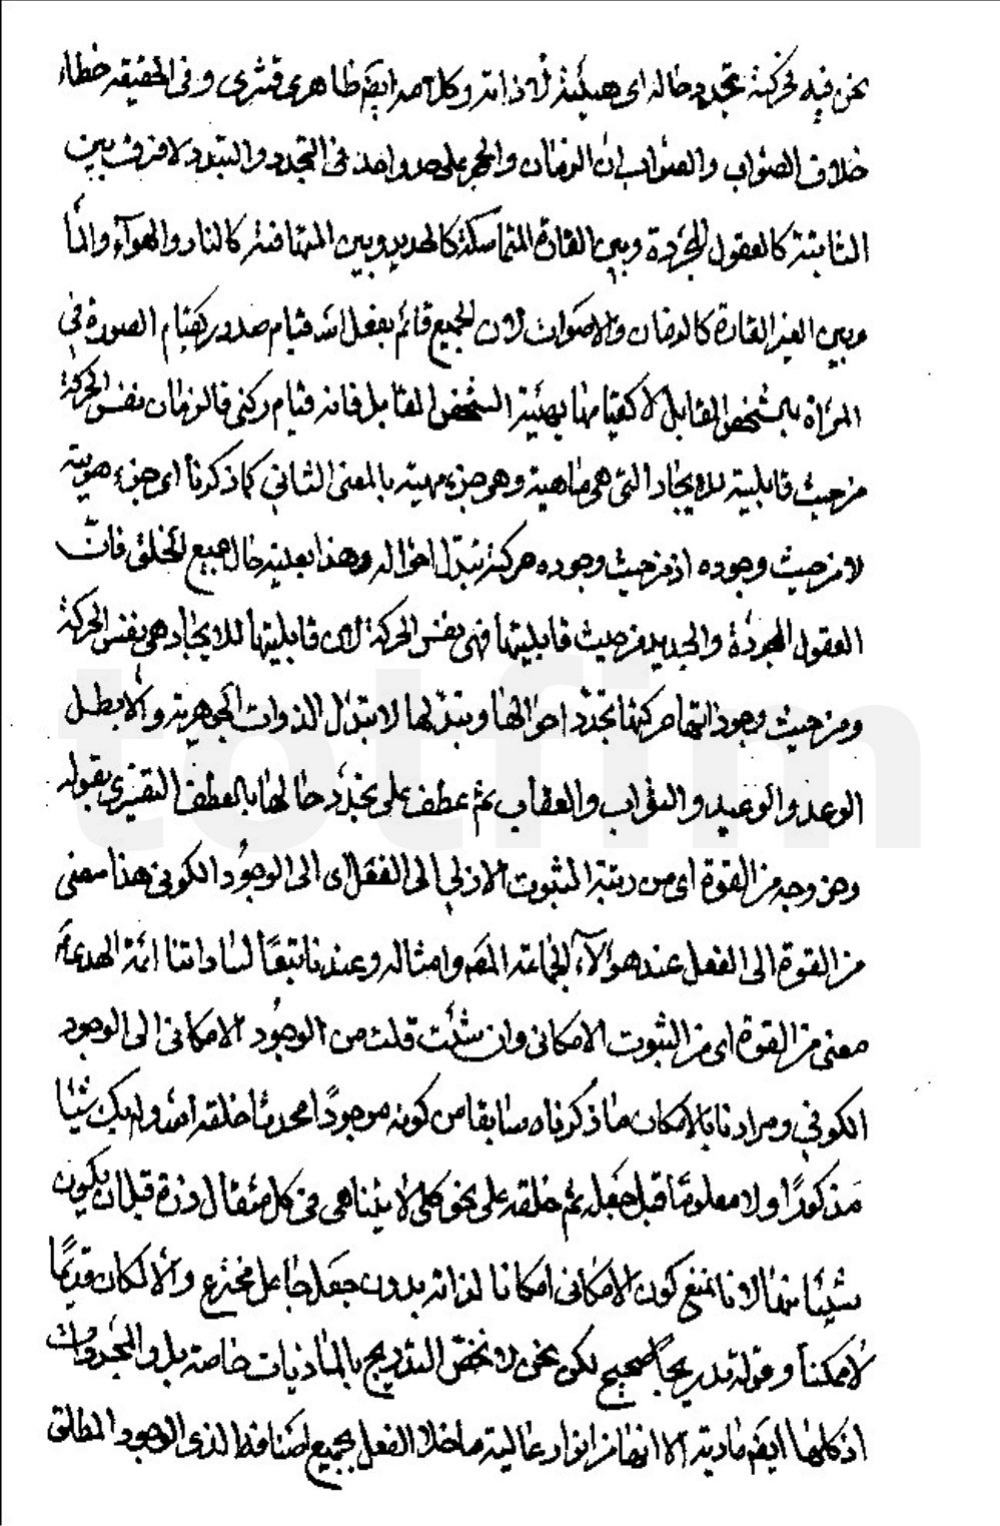 نحن فيه لحركته تجدد حاله اى هيئته لا ذاته وكلامه ايضم ظاهرى قشرى وفى الحقيقه خطاء
خلاف الصواب والصواب ان الزمان والحجر على حد واحد فى التجدد والتبدد لا فرق بين
الثابتة كالعقول المجردة وبين القارة المتماسكة كالحديد وبين المتهافتة كالنار والهوآء والمآ
وبين الغير القارة كالزمان والاصوات لان الجميع قائم بفعل الله قيام صدور كقيام الصورة فى
المرآة بالشخص المقابل لا كقيامها بهيئة الشخص المقابل فانه قيام ركنى فالزمان نفس الحركة
من حيث قابليته للايجاد التى هى ماهيته وهو جزء مهيته بالمعنى الثانى كما ذكرنا اى جزء هويته
لا من حيث وجوده اذ من حيث وجوده حركته تبدل احواله وهذا بعينه حال جميع الخلق فانّ
العقول المجردة والحديد من حيث قابليتها فهى نفس الحركة لان قابليتها للايجاد هى نفس الحركة
ومن حيث وجوداتها حركتها تجدّد احوالها وتبدّلها لا تبدّل الذوات الجوهرية والا بطل
الوعد والوعيد والثواب والعقاب ثم عطف على تجدّد حالها بالعطف التفسيرى بقوله
وخروجه من القوة اى من رتبة الثبوت الازلى الى الفعل اى الى الوجود الكونى هذا معنى
من القوة الى الفعل عند هولآء الجماعة المصم وامثاله وعندنا تبعًا لساداتنا ائمة الهدى عم
معنى من القوة اى من الثبوت الامكانى وان شئت قلت من الوجود الامكانى الى الوجود
الكونى ومرادنا بالامكان ما ذكرناه سابقا من كونه موجودًا محدثا خلقه الله ولم يك شيئا
مذكورًا ولا معلومًا قبل جعله ثم خلقه على نحو كلى لا يتناهى فى كل مثقال ذرة قبل ان يكون
شيئا منها لانا نمنع كون الامكانى امكانا لذاته بدون جعل جاعل مخترع والا لكان قديما
لا ممكنا وقوله تدريجا صحيح لكن نحن لا نخصّ التدريج بالماديات خاصة بل والمجردات
اذ كلها ايضم مادية الا انها من انوار عالية ما خلا الفعل بجميع اصنافه الذى الوجود المطلق